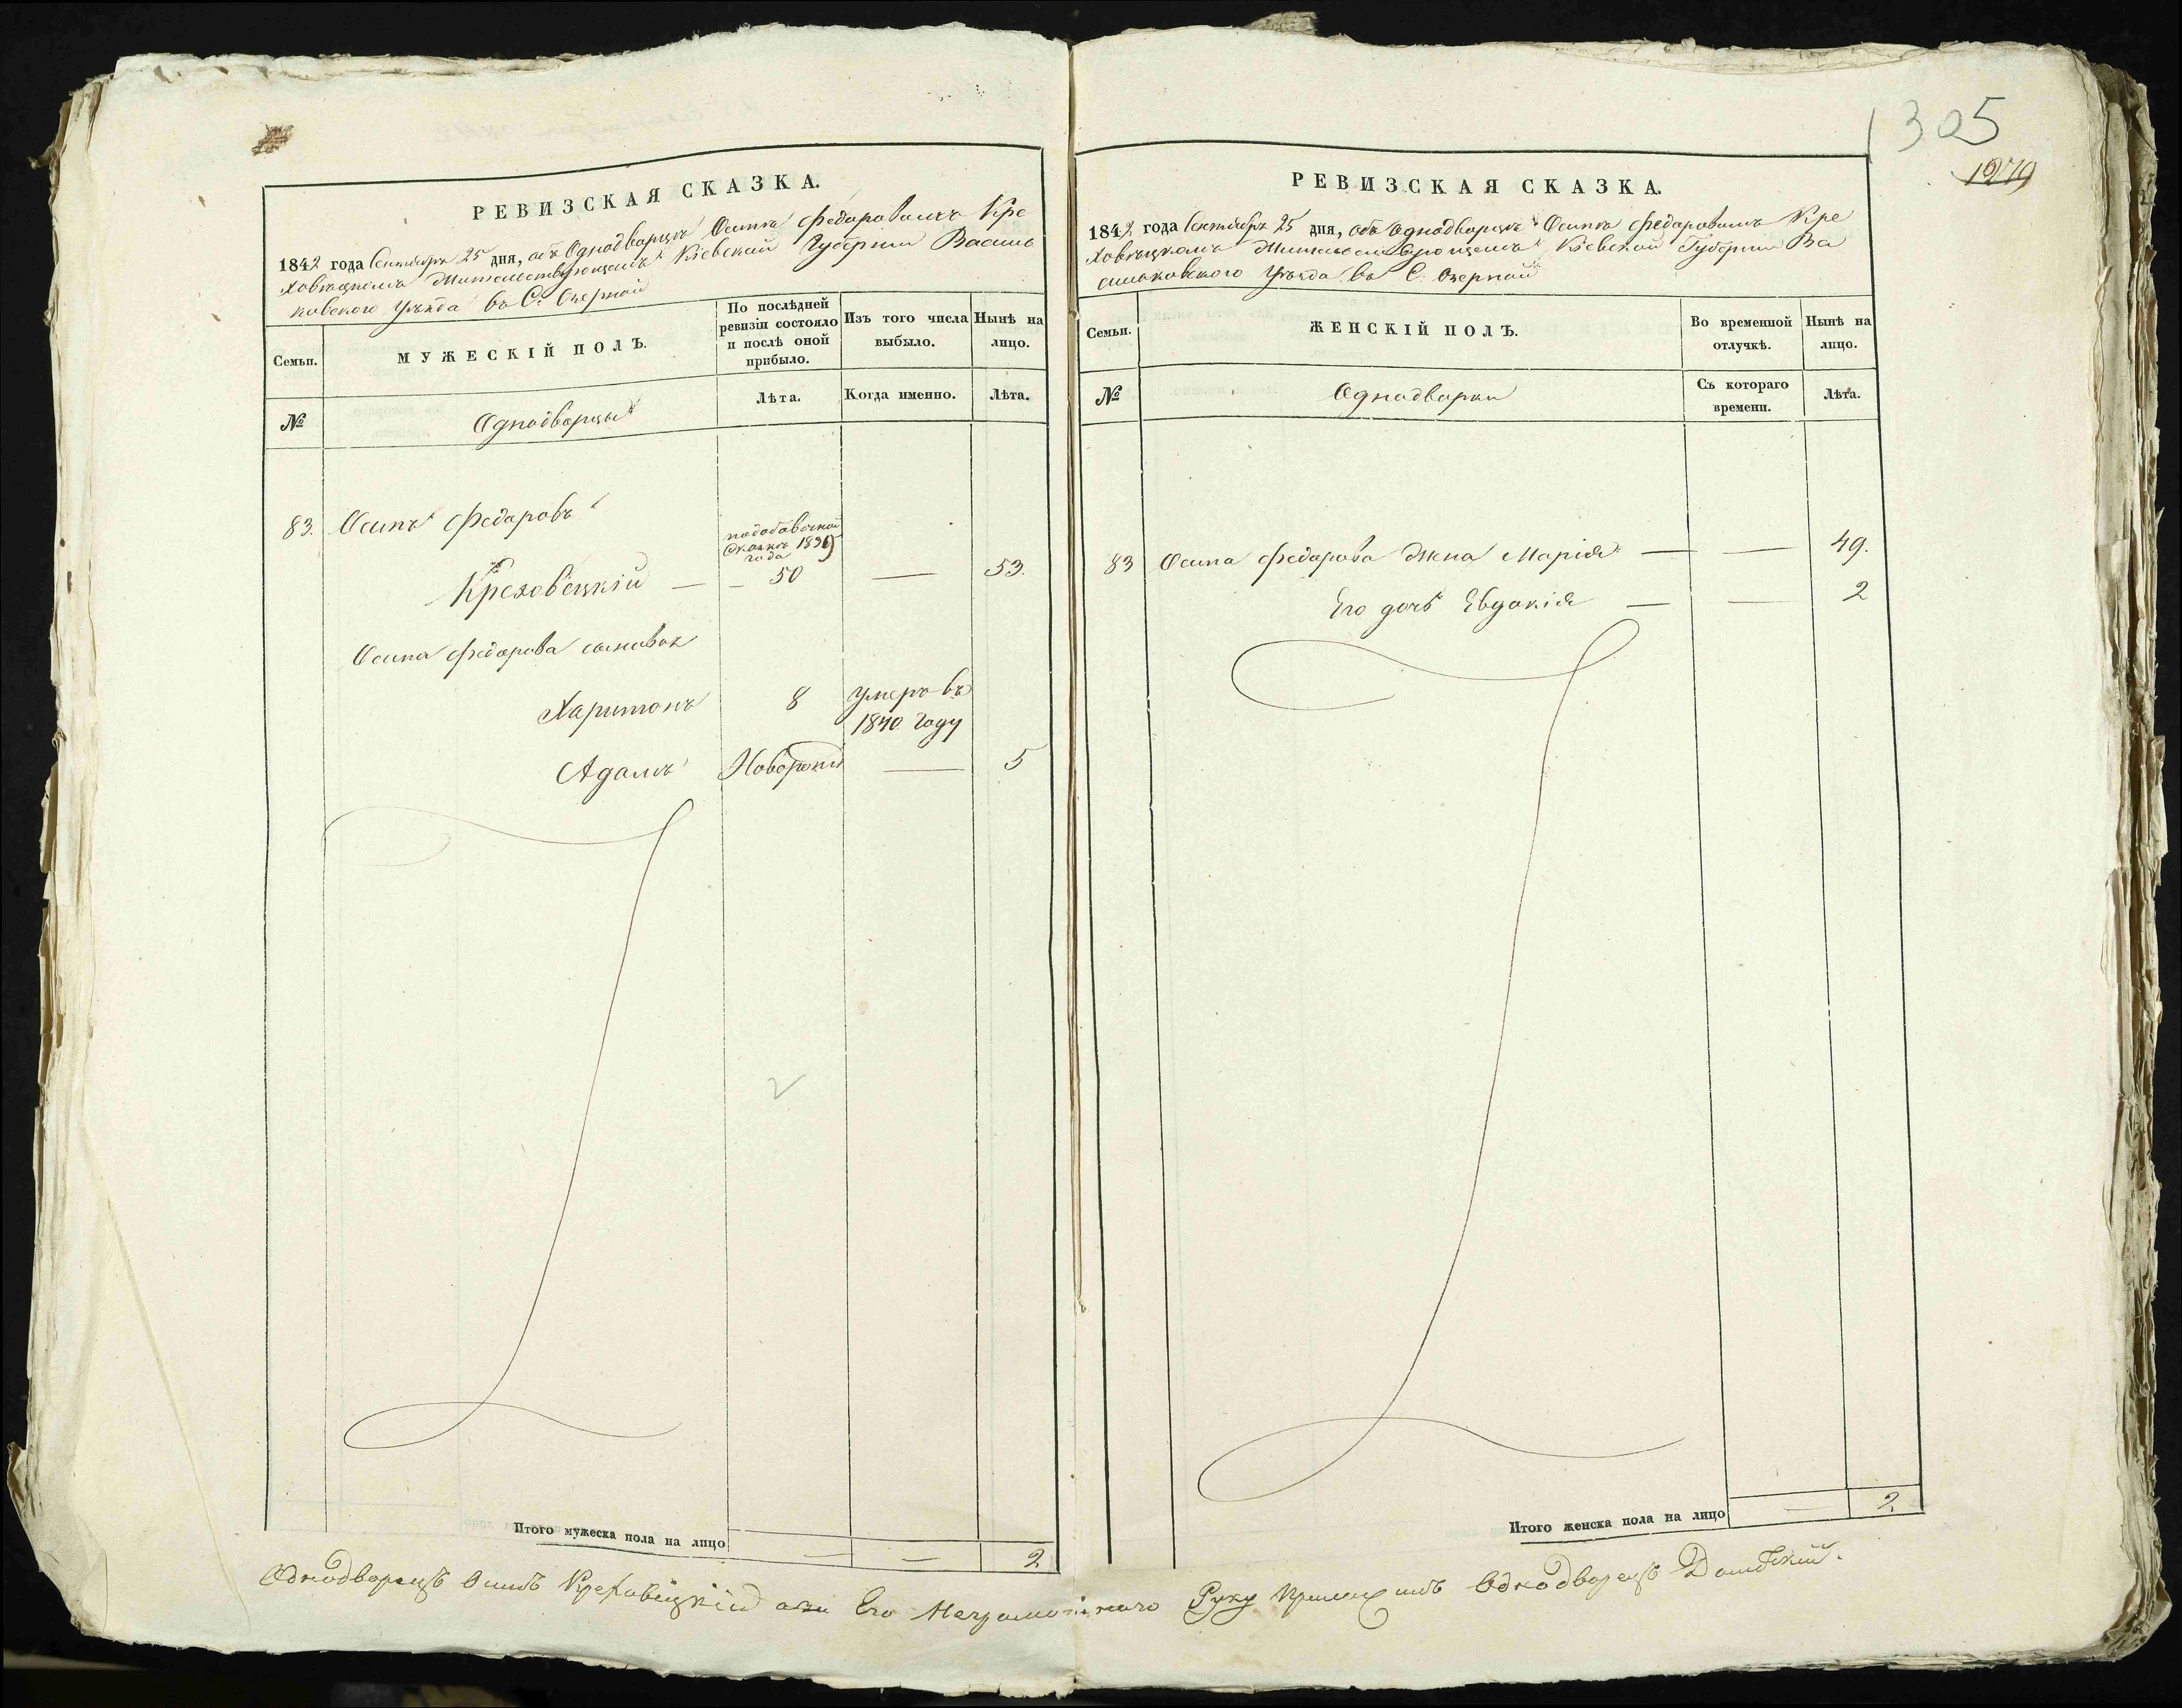 РЕВИЗСКАЯ СКАЗКА.
1842 года Сентября 25 дня, объ Однодворцѣ Осипѣ Федаровомъ Кре
ховѣцкомъ жительствующемъ Кіевской Губерніи Василь
ковского Уѣзда въ С: Озерной
Семьи.
МУЖЕСКІЙ ПОЛЪ.
По послѣдней
ревизіи состояло
и послѣ оной
прибыло.
Изъ того числа
выбыло.
Нынѣ на
лицо.
№
Однодворцы
Лѣта.
Когда именно.
Лѣта.
83. Осипъ Федаровъ
подобавочной
сказкѣ 1839
года
Креховѣцкій — — 50 — 53.
Осипа Федарова сыновья
Харитонъ 8 умеръ въ
1840 году
Адамъ Новорожд — 5
Итого мужеска пола на лицо — — 2
305
1279
РЕВИЗСКАЯ СКАЗКА.
1842 года Сентября 25 дня, объ Однодворцѣ Осипѣ Федаровомъ Кре
ховѣцкомъ жительствующемъ Кіевской Губерніи Ва
сильковского Уѣзда въ С: Озерной
Семьи.
ЖЕНСКІЙ ПОЛЪ.
Во временной
отлучкѣ.
Нынѣ на
лицо.
№
Однодворки
Съ котораго
времени.
Лѣта.
83 Осипа Федарова жена Марія — — 49.
Его дочь Евдокія — — 2
Итого женска пола на лицо — 2
Однодворецъ Осипъ Креховѣцкій а за Его Неграмотного Руку приложилъ Однодворецъ